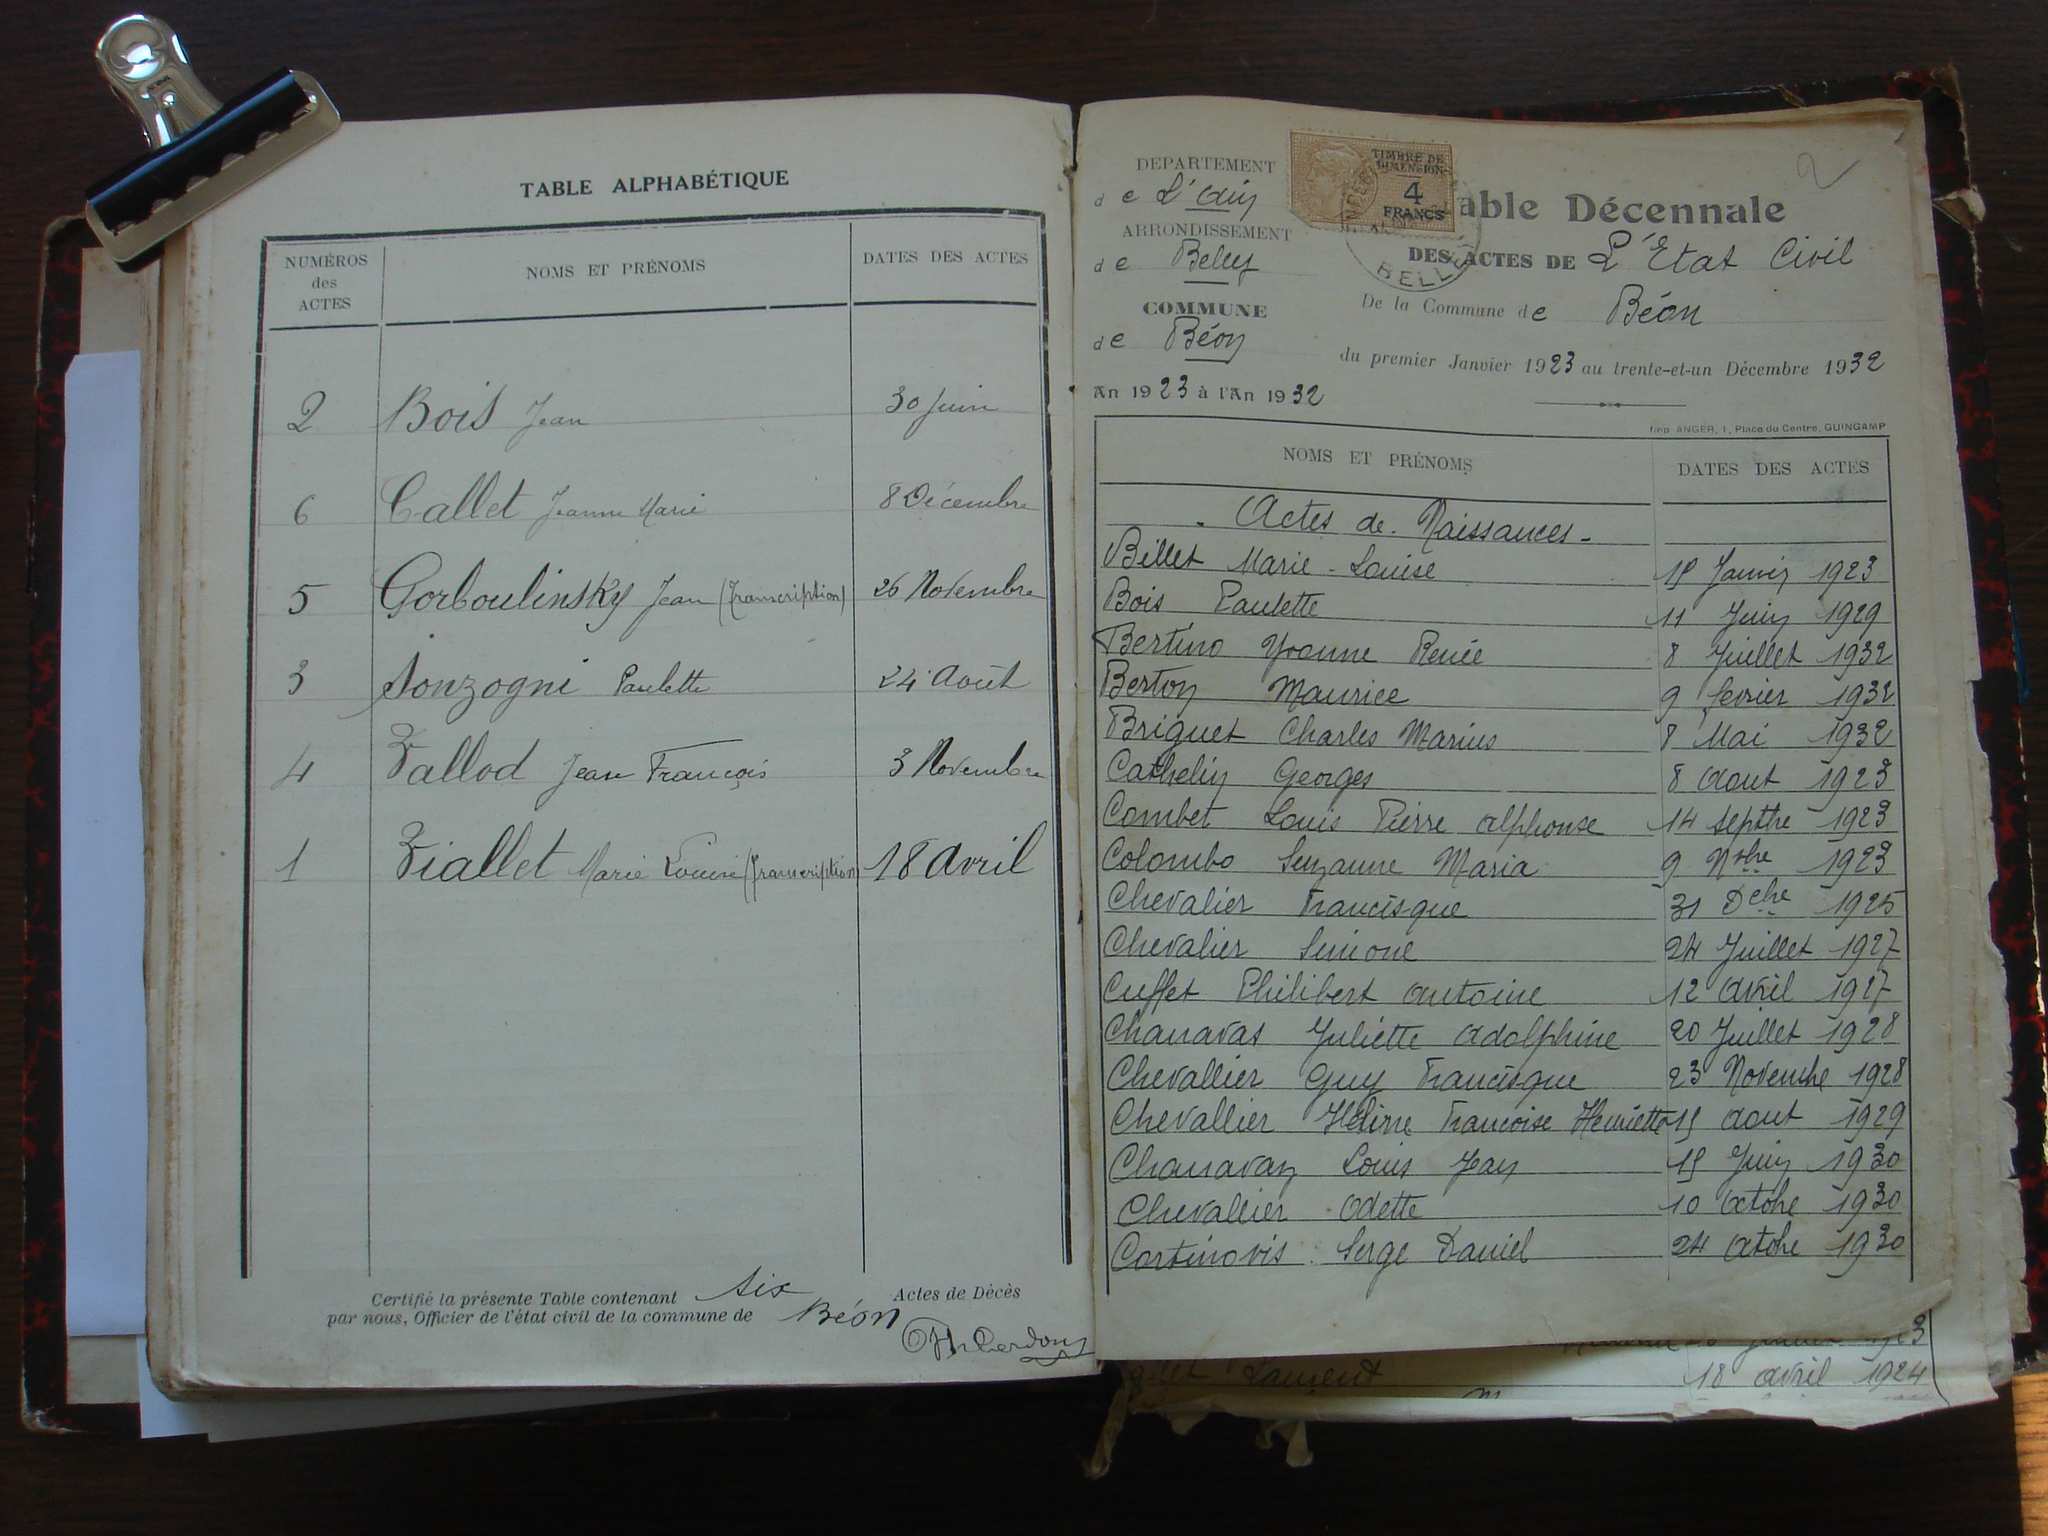 TABLE ALPHABÉTIQUE
NUMÉROS des ACTES NOMS ET PRÉNOMS DATES DES ACTES
2 Bois Jean 30 Juin
6 Callet Jeanne Marie 8 Décembre
5 Gorboulinsky Jean (Transcription) 26 Novembre
3 Sonzogni Paulette 24 Août
4 Vallod Jean François 3 Novembre
1 Viallet Marie Louise (Transcription) 18 Avril
Certifié la présente Table contenant six Actes de Décès
par nous, Officier de l'état civil de la commune de Béon
DÉPARTEMENT
de L'Ain
ARRONDISSEMENT
de Belley
COMMUNE
de Béon
An 1923 à l'An 1932
TIMBRE DE
DIMENSION
4
FRANCS
BELL
able Décennale
DES ACTES DE L'Etat Civil
De la Commune de Béon
du premier Janvier 1923 au trente-et-un Décembre 1932
Imp. ANGER, 1, Place du Centre, GUINGAMP
NOMS ET PRÉNOMS DATES DES ACTES
Actes de Naissances
Billet Marie-Louise 15 Janvier 1923
Bois Paulette 11 Juin 1929
Bertino Yvonne Renée 8 Juillet 1932
Berton Maurice 9 fevrier 1932
Briquet Charles Marius 8 Mai 1932
Cathelin Georges 8 Aout 1923
Combet Louis Pierre Alphonse 14 Septbre 1923
Colombo Suzanne Maria 9 Nbre 1923
Chevalier Francisque 31 Dcbe 1925
Chevalier Simone 24 Juillet 1927
Cuffet Philibert Antoine 12 Avril 1927
Chanavas Juliette Adolphine 20 Juillet 1928
Chevallier Guy Francisque 23 Novembe 1928
Chevallier Hélène Francoise Henriette 15 Aout 1929
Chanavaz Louis Jean 15 Juin 1930
Chevallier Odette 10 Octobe 1930
Cortinovis Serge Daniel 24 Octobe 1930
Laurent 18 avril 1924